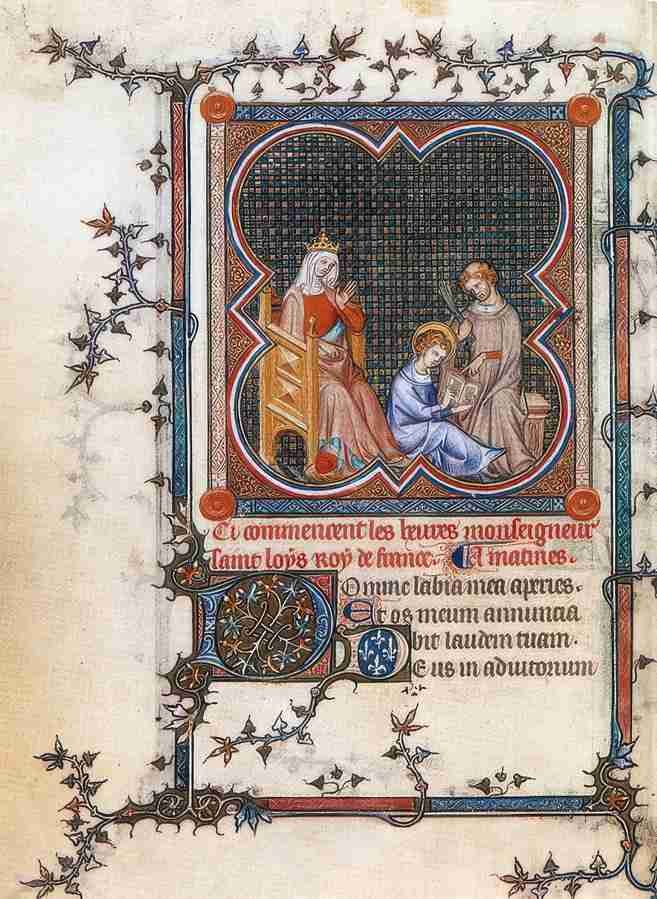 Ci commencent les heures monseigneur
saint loÿs Roÿ de france. A matines.
Domine labia mea aperies.
Et os meum annuncia
bit laudem tuam.
Deus in adiutorium